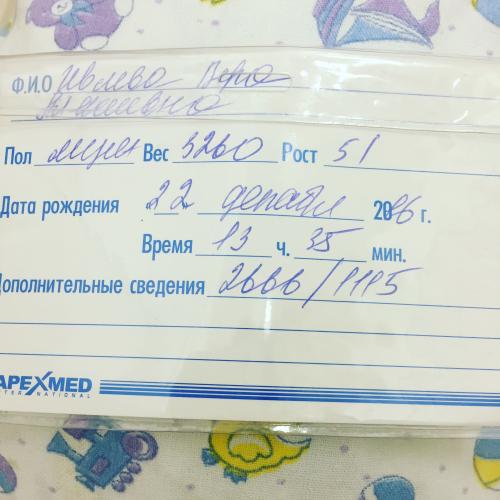 Ф.И.О Ивлева Вера
Пол мужск Вес 3260 Рост 51
Дата рождения 22 декабря 2016 г.
Время 13 ч. 35 мин.
Дополнительные сведения 2666/1115
APEXMED
INTERNATIONAL